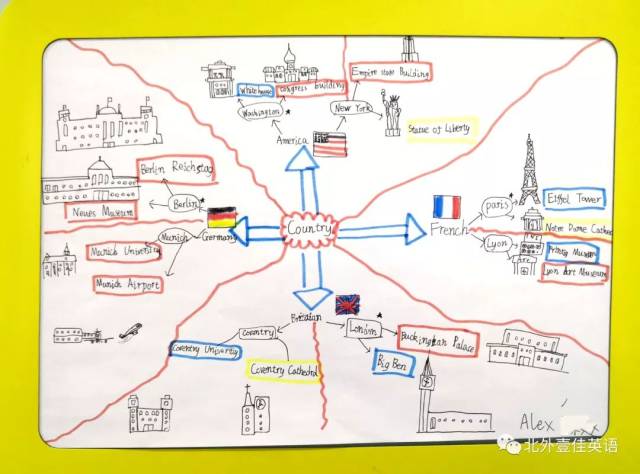 White house
congress building
Empire state Building
Washington
New York
Statue of Liberty
America
Berlin Reichstag
Berlin
Neues Museum
Munich
Germany
Munich University
Munich Airport
Country
French
paris
Eiffel Tower
Notre Dame Cathed
Lyon
Museum
Lyon Art Museum
London
Buckingtan Palace
Big Ben
coventry
Coventry
Coventry Cathedral
Alex
北外壹佳英语